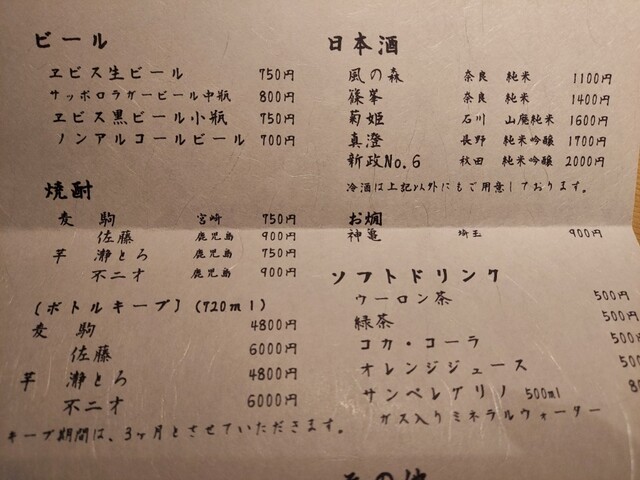 ビール
ヱビス生ビール 750円
サッポロラガービール中瓶 800円
ヱビス黒ビール小瓶 750円
ノンアルコールビール 700円
焼酎
麦 駒 宮崎 750円
佐藤 鹿児島 900円
芋 瀞とろ 鹿児島 750円
不二才 鹿児島 900円
(ボトルキープ) (720ml)
麦 駒 4800円
佐藤 6000円
芋 瀞とろ 4800円
不二才 6000円
キープ期間は、3ヶ月とさせていただきます。
日本酒
風の森 奈良 純米 1100円
篠峯 奈良 純米 1400円
菊姫 石川 山廃純米 1600円
真澄 長野 純米吟醸 1700円
新政No.6 秋田 純米吟醸 2000円
冷酒は上記以外にもご用意しております。
お燗
神亀 埼玉 900円
ソフトドリンク
ウーロン茶 500円
緑茶 500円
コカ・コーラ 500
オレンジジュース 500
サンペレグリノ 500ml 8
ガス入りミネラルウォーター
その他